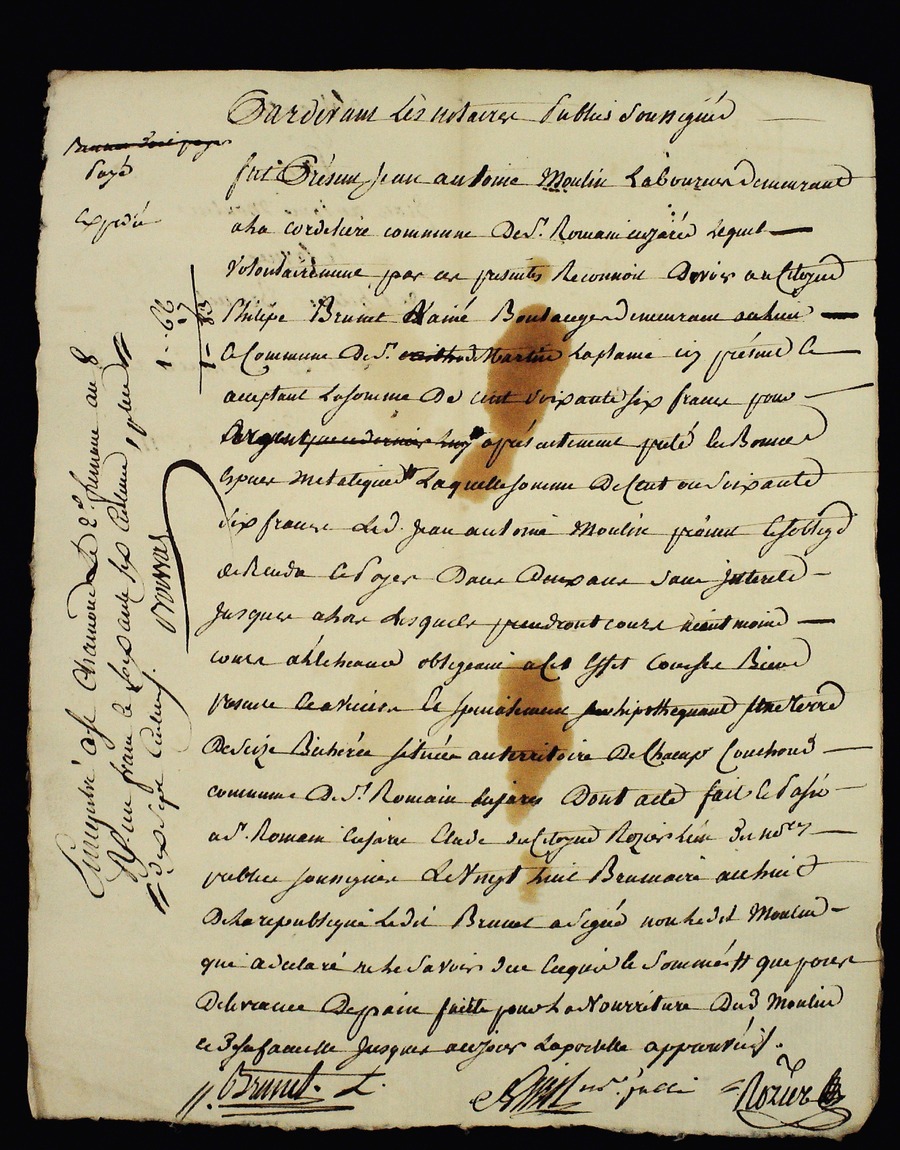 Pardevant Les notaires Publics Soussignés
Payé
expédié
fut Présent Jean antoine Moulin Laboureur demeurant
a La cordeliere commune De St. Romain enjarés Lequel
Volontairement par ces presentes Reconnoit Devoir au Citoyen
Philipe Brunet L'ainé Boulanger demeurant au lieu
& Commune De St. Martin Laplaine icy présent &
acceptant La somme De cent soixante six francs pour
prété en Bonnes
Espices metaliques Laquelle somme De Cent soixante
six francs Led. Jean antoine Moulin promet & s'oblige
de Rendre & Payer Dans Deux ans sans Interets
Jusques alors Lesquels prendront cours néantmoins
cours a L'echeance obligeant a Cet Effet tous ses Biens
presents & avenirs & specialement hipothequant une terre
De Seize Bicherées située au territoire De Champ Couchoud
commune De St. Romain enjarés Dont acte fait & Passé
a St. Romain enjarés Etude du Citoyen Rozier L'un des nores
publics soussignés Le Vingt huit Brumaire an huit
De La republique Ledit Brunet a Signé non Ledit Moulin
qui a declaré ne Le Savoir De ce enquis & Sommé # que pour
Delivrance De pain faitte pour La Nourriture Dud Moulin
& De sa famille Jusques a ce jour La postille approuvée.
Brunet L.
Rozier
1 - 66
17
1 - 83
Enregistré a St. Chamond Le 2e. frimaire an 8
Reçu un franc & soixante six centimes plus
dix sept centimes